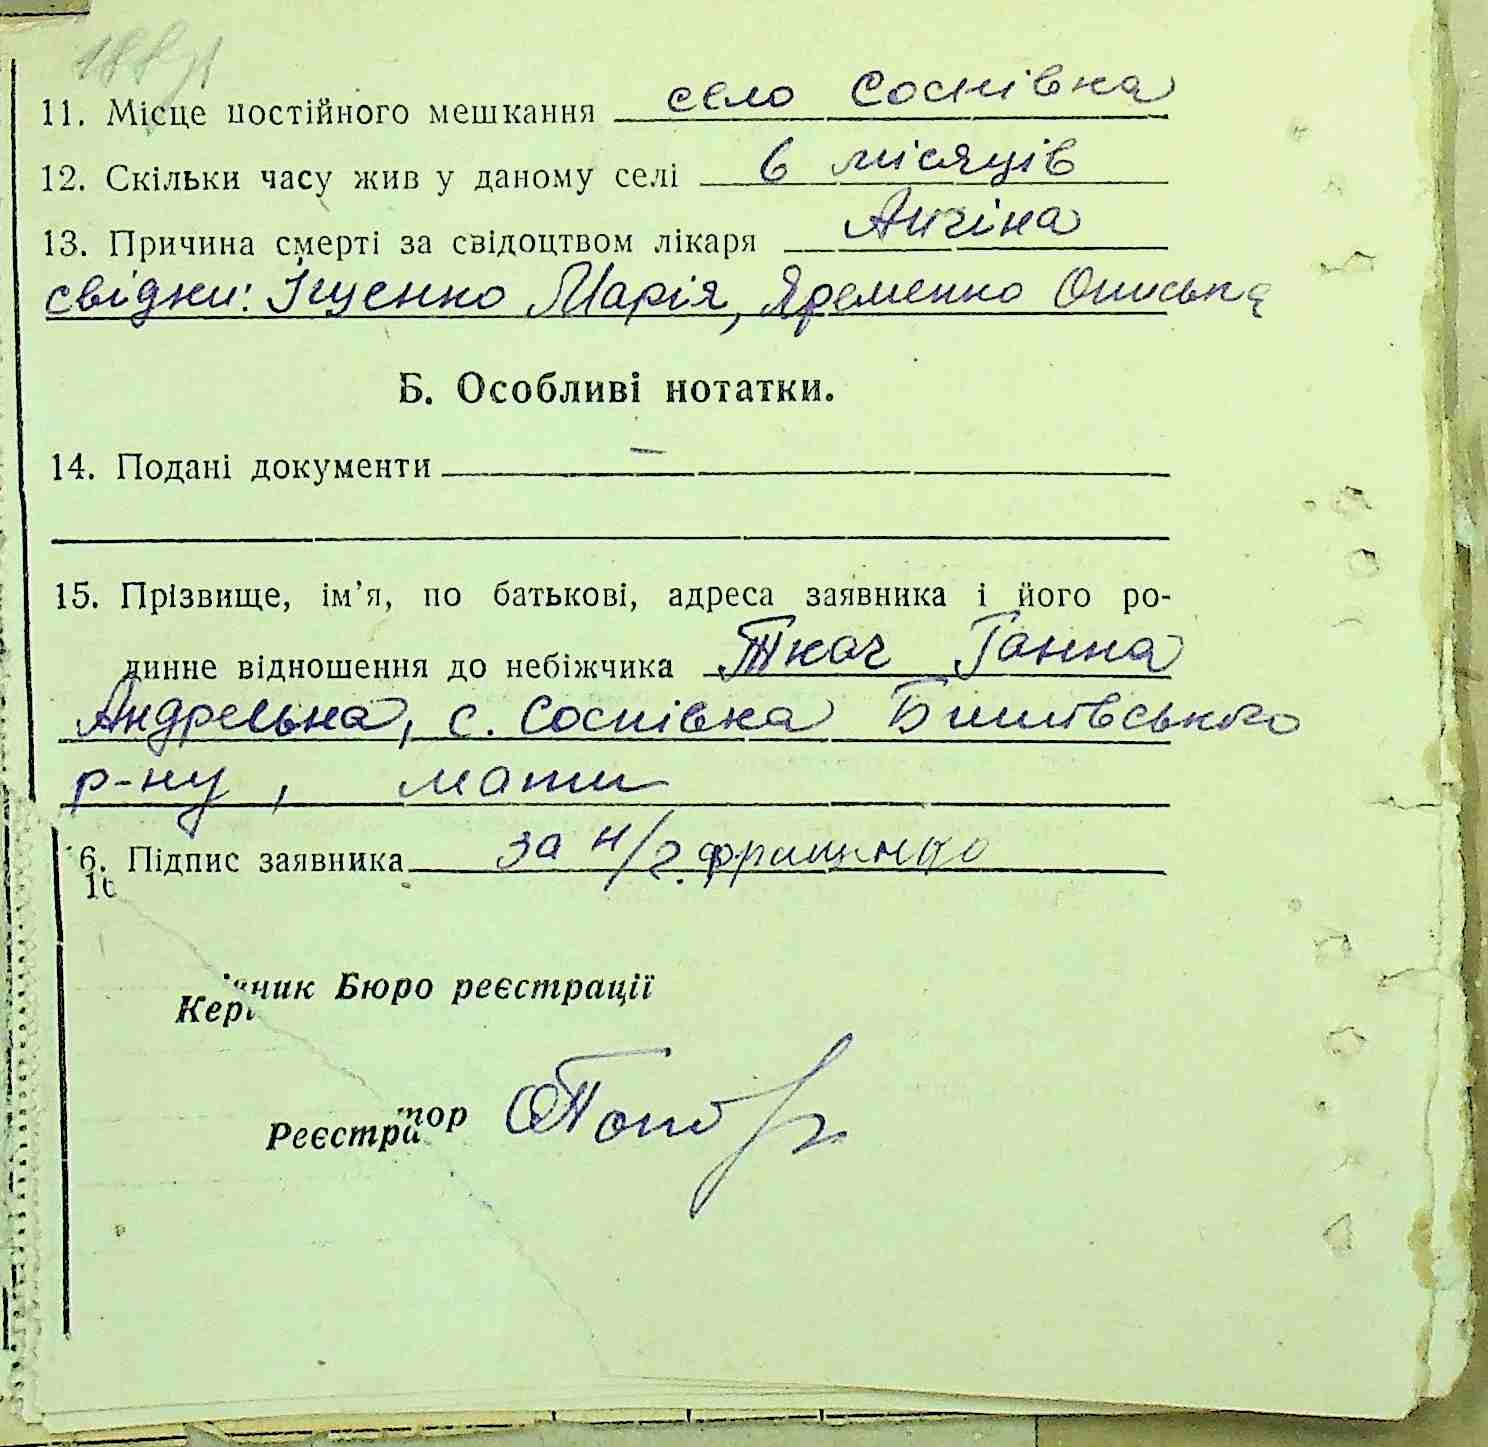 11. Місце постійного мешкання село Соснівка
12. Скільки часу жив у даному селі 6 місяців
13. Причина смерті за свідоцтвом лікаря Ангіна
свідки: Іщенко Марія, Яременко Описька
Б. Особливі нотатки.
14. Подані документи —
15. Прізвище, ім’я, по батькові, адреса заявника і його ро-
динне відношення до небіжчика Ткач Ганна
Андреївна, с. Соснівка Бишівського
р-ну, мати
16. Підпис заявника за н/г
Керівник Бюро реєстрації
Реєстратор